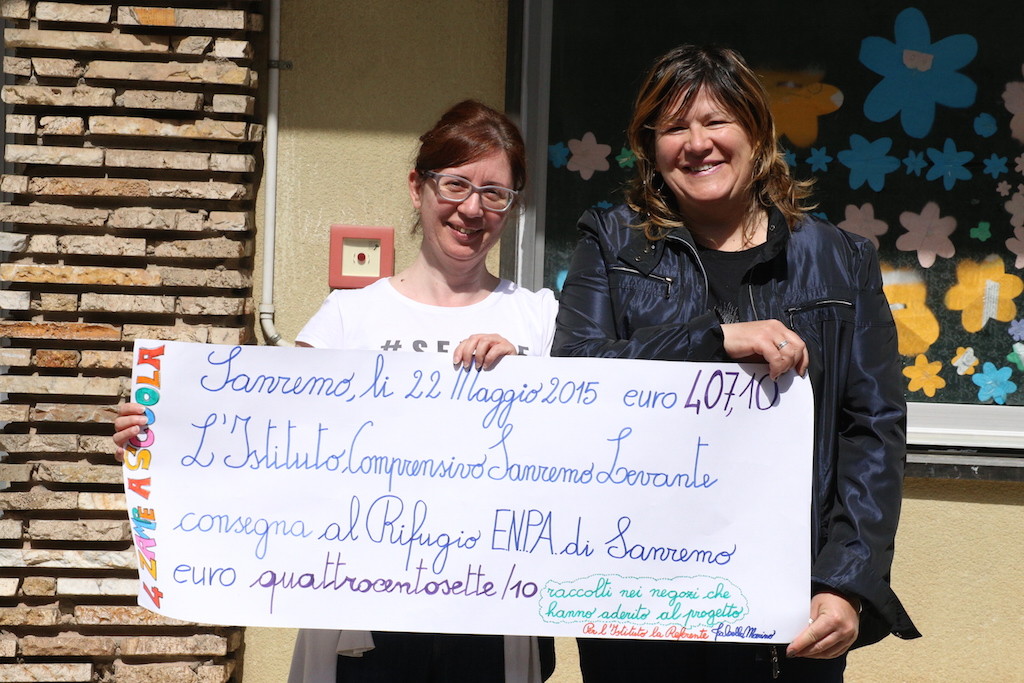 4 ZAMPE A SCUOLA
Sanremo, li 22 Maggio 2015 euro 407,10
L'Istituto Comprensivo Sanremo Levante
consegna al Rifugio E.N.P.A. di Sanremo
euro quattrocentosette/10
raccolti nei negozi che
hanno aderito al progetto
Per l'Istituto la Referente